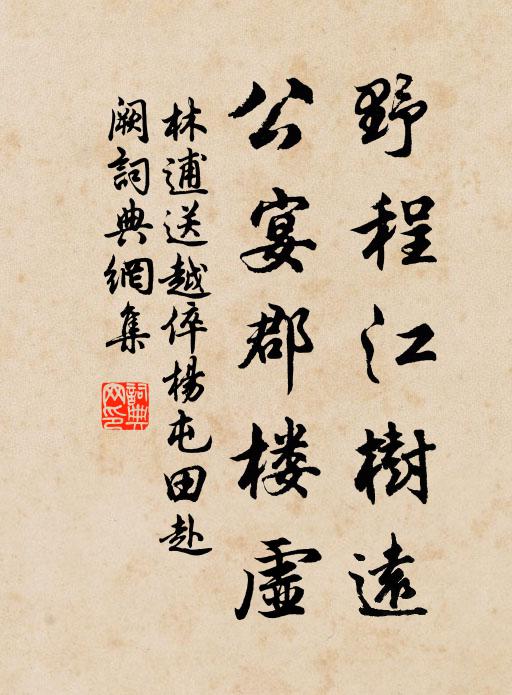 野程江樹遠
公宴郡楼虛
林逋送越倅楊屯田赴
闕詞典網集
詞典
网印